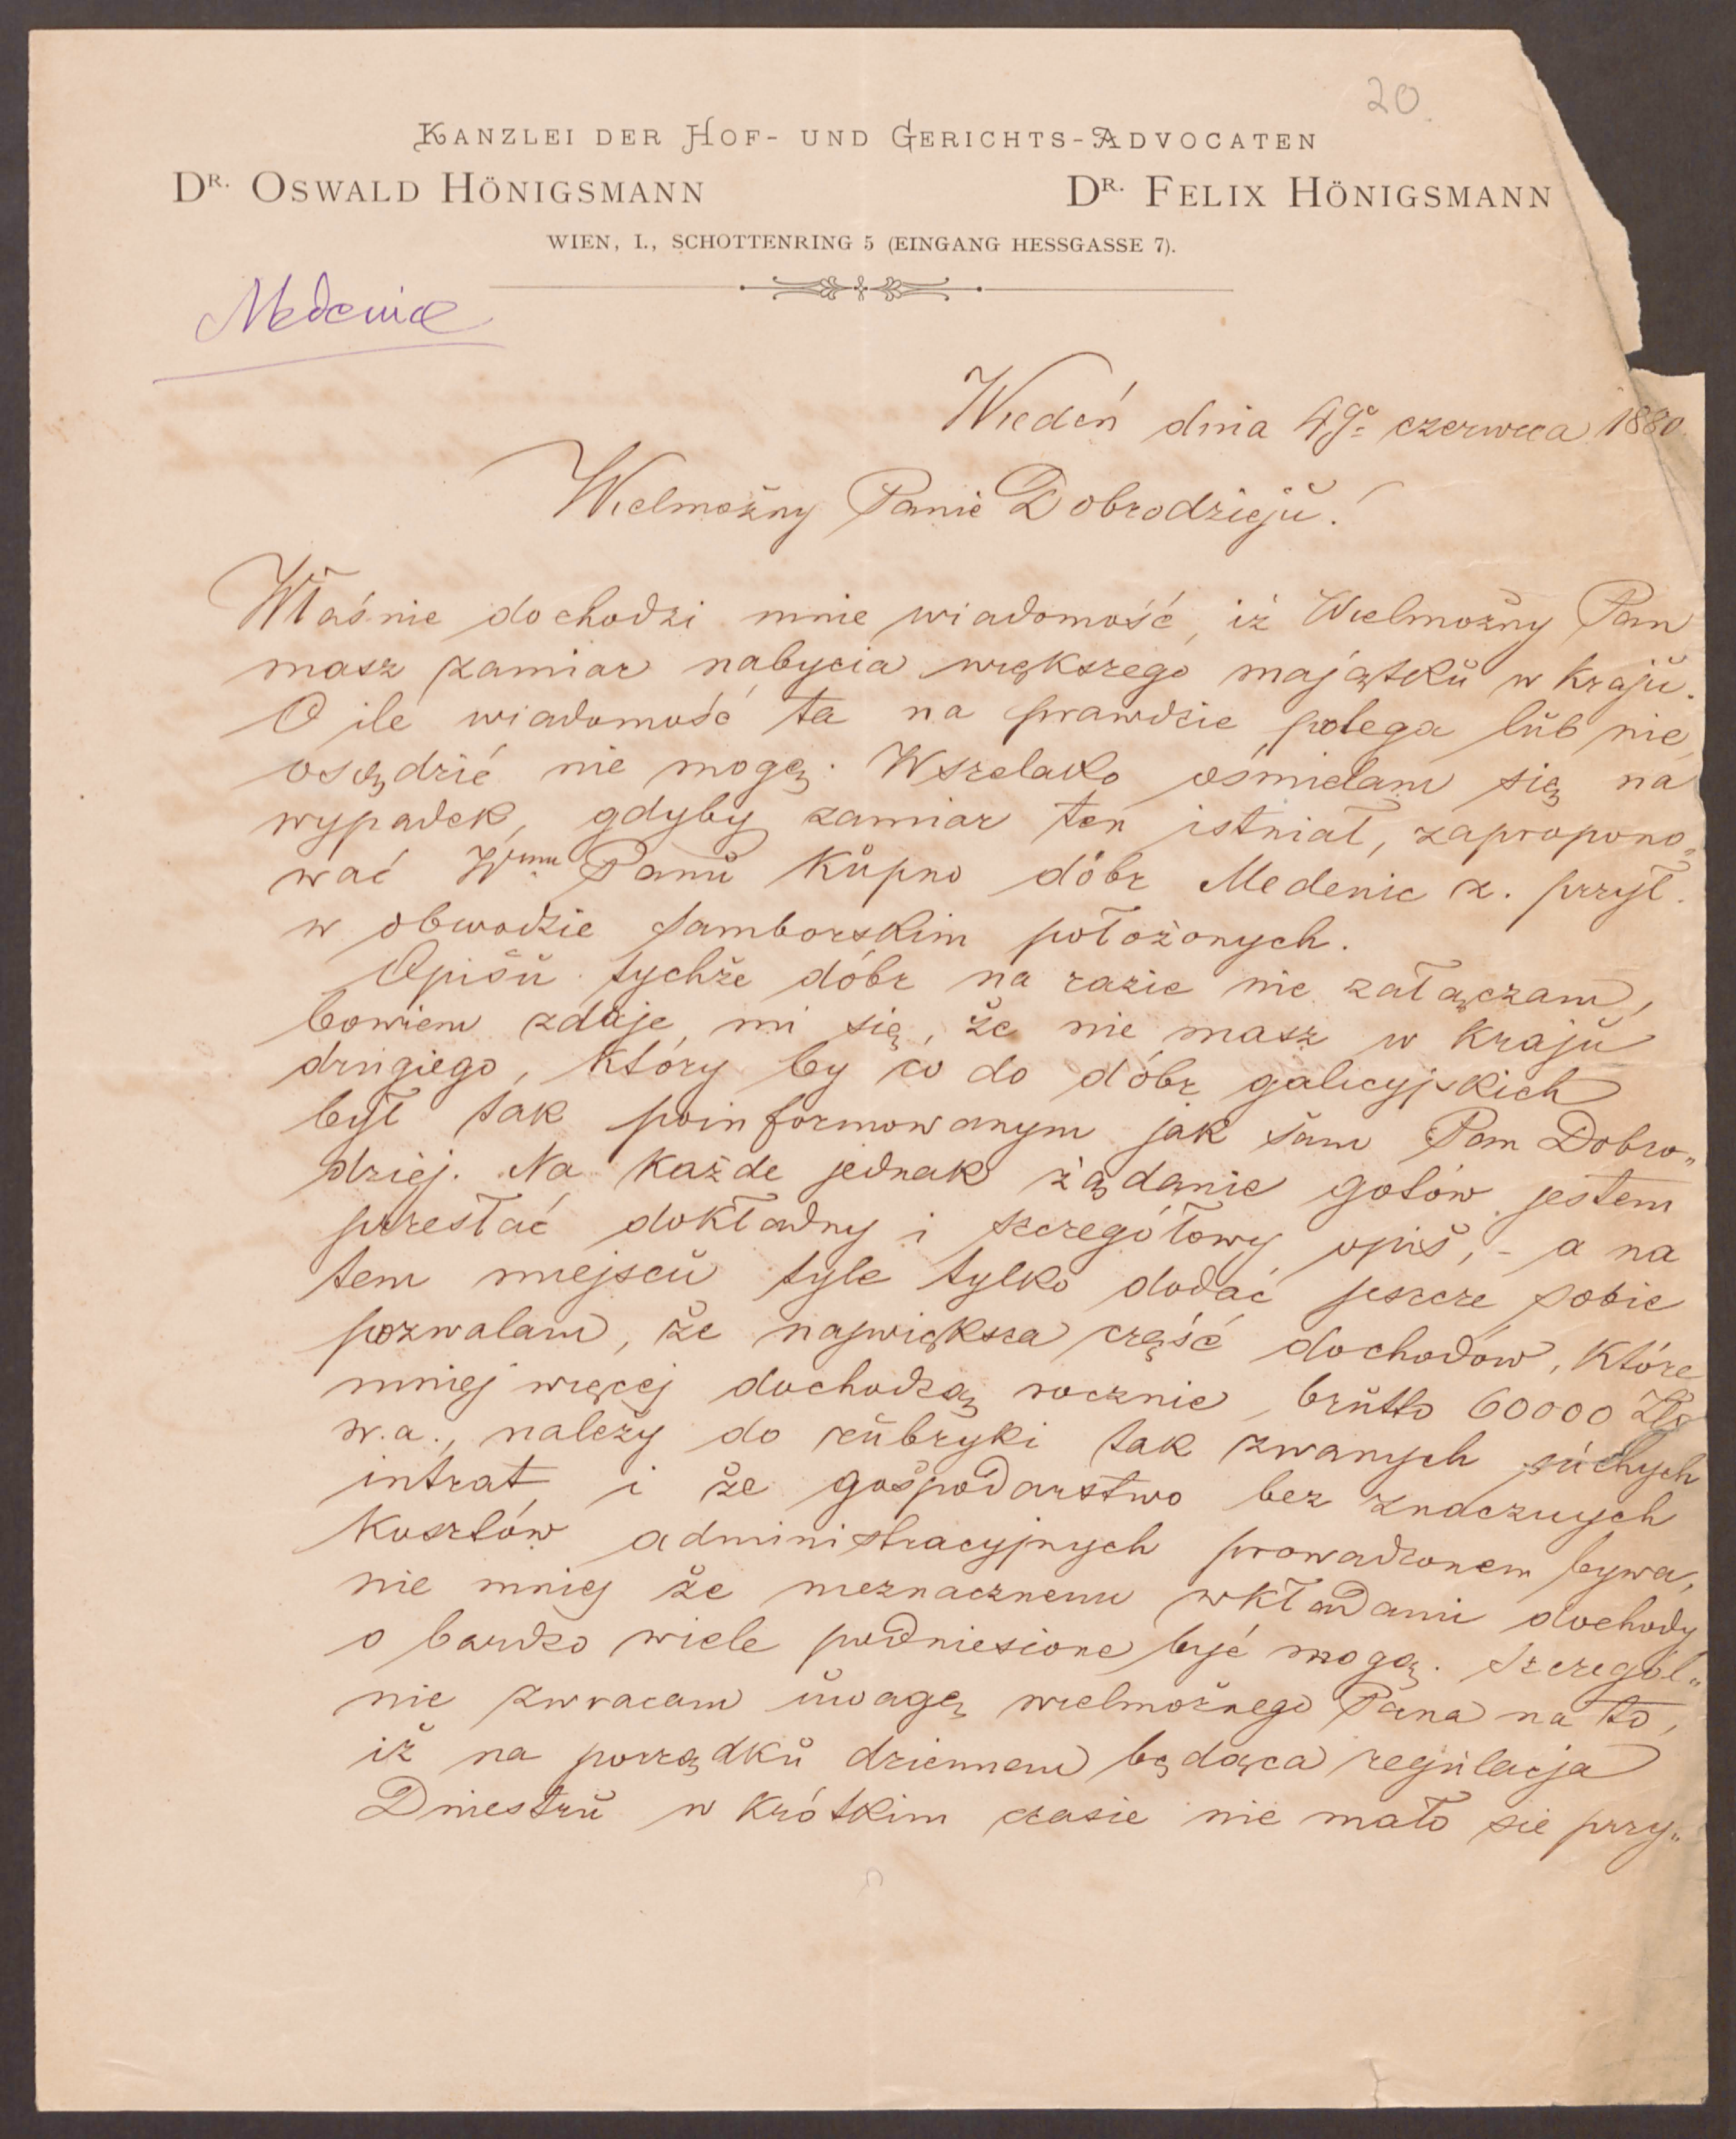 20
KANZLEI DER HOF- UND GERICHTS-ADVOCATEN
DR. OSWALD HÖNIGSMANN DR. FELIX HÖNIGSMANN
WIEN, I., SCHOTTENRING 5 (EINGANG HESSGASSE 7).
Medenice
Wiedeń dnia 4go czerwca 1880.
Wielmożny Panie Dobrodzieju!
Właśnie dochodzi mnie wiadomość, iż Wielmożny Pan
masz zamiar nabycia większego majątku w kraju.
O ile wiadomość ta na prawdzie polega lub nie,
osądzić nie mogę. Wszelako ośmielam się na
wypadek, gdyby zamiar ten istniał, zapropono„
wać Wmu Panu kupno dóbr Medenic z. przyl.
w obwodzie samborskim położonych.
Opisu tychże dóbr na razie nie załączam,
bowiem zdaje mi się, że nie masz w kraju
drugiego, który by co do dóbr galicyjskich
był tak poinformowanym jak sam Pan Dobro„
dziej. Na każde jednak żądanie gotów jestem
przesłać dokładny i szczegółowy opis, - a na
tem miejscu tyle tylko dodać jeszcze sobie
pozwalam, że największa część dochodów, które
mniej więcej dochodzą rocznie brutto 60000 Złr
w.a., należy do rubryki tak zwanych suchych
intrat i że gospodarstwo bez znacznych
kosztów administracyjnych prowadzonem bywa,
nie mniej że nieznacznemi wkładami dochody
o bardzo wiele podniesione być mogą. Szczegól„
nie zwracam uwagę wielmożnego Pana na to,
iż na porządku dziennem będąca regulacja
Dniestru w krótkim czasie nie mało się przy„